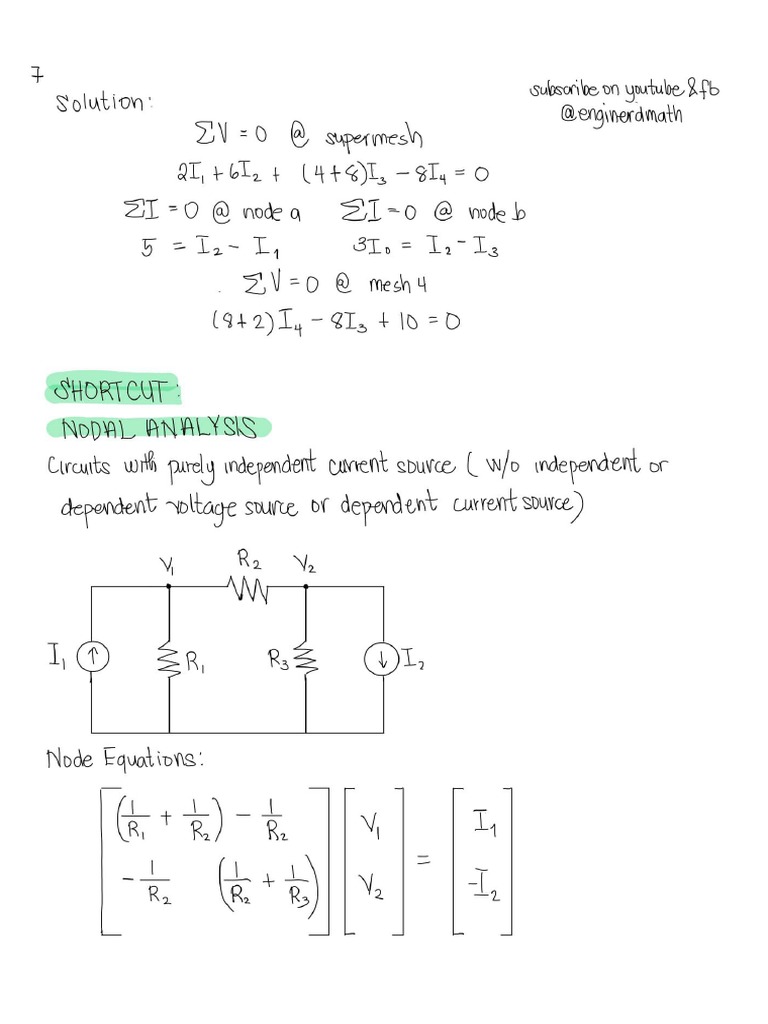 7
Solution:
subscribe on youtube & fb
@enginerdmath
ΣV = 0 @ supermesh
2I₁ + 6I₂ + (4+8)I₃ − 8I₄ = 0
ΣI = 0 @ node a ΣI = 0 @ node b
5 = I₂ − I₁ 3I₀ = I₂ − I₃
ΣV = 0 @ mesh 4
(8+2)I₄ − 8I₃ + 10 = 0
SHORTCUT:
NODAL ANALYSIS
Circuits with purely independent current source (w/o independent or
dependent voltage source or dependent current source)
V₁ R₂ V₂
I₁ R₁ R₃ I₂
Node Equations:
[(1/R₁ + 1/R₂) − 1/R₂] [V₁] = [I₁]
[− 1/R₂ (1/R₂ + 1/R₃)] [V₂] [-I₂]